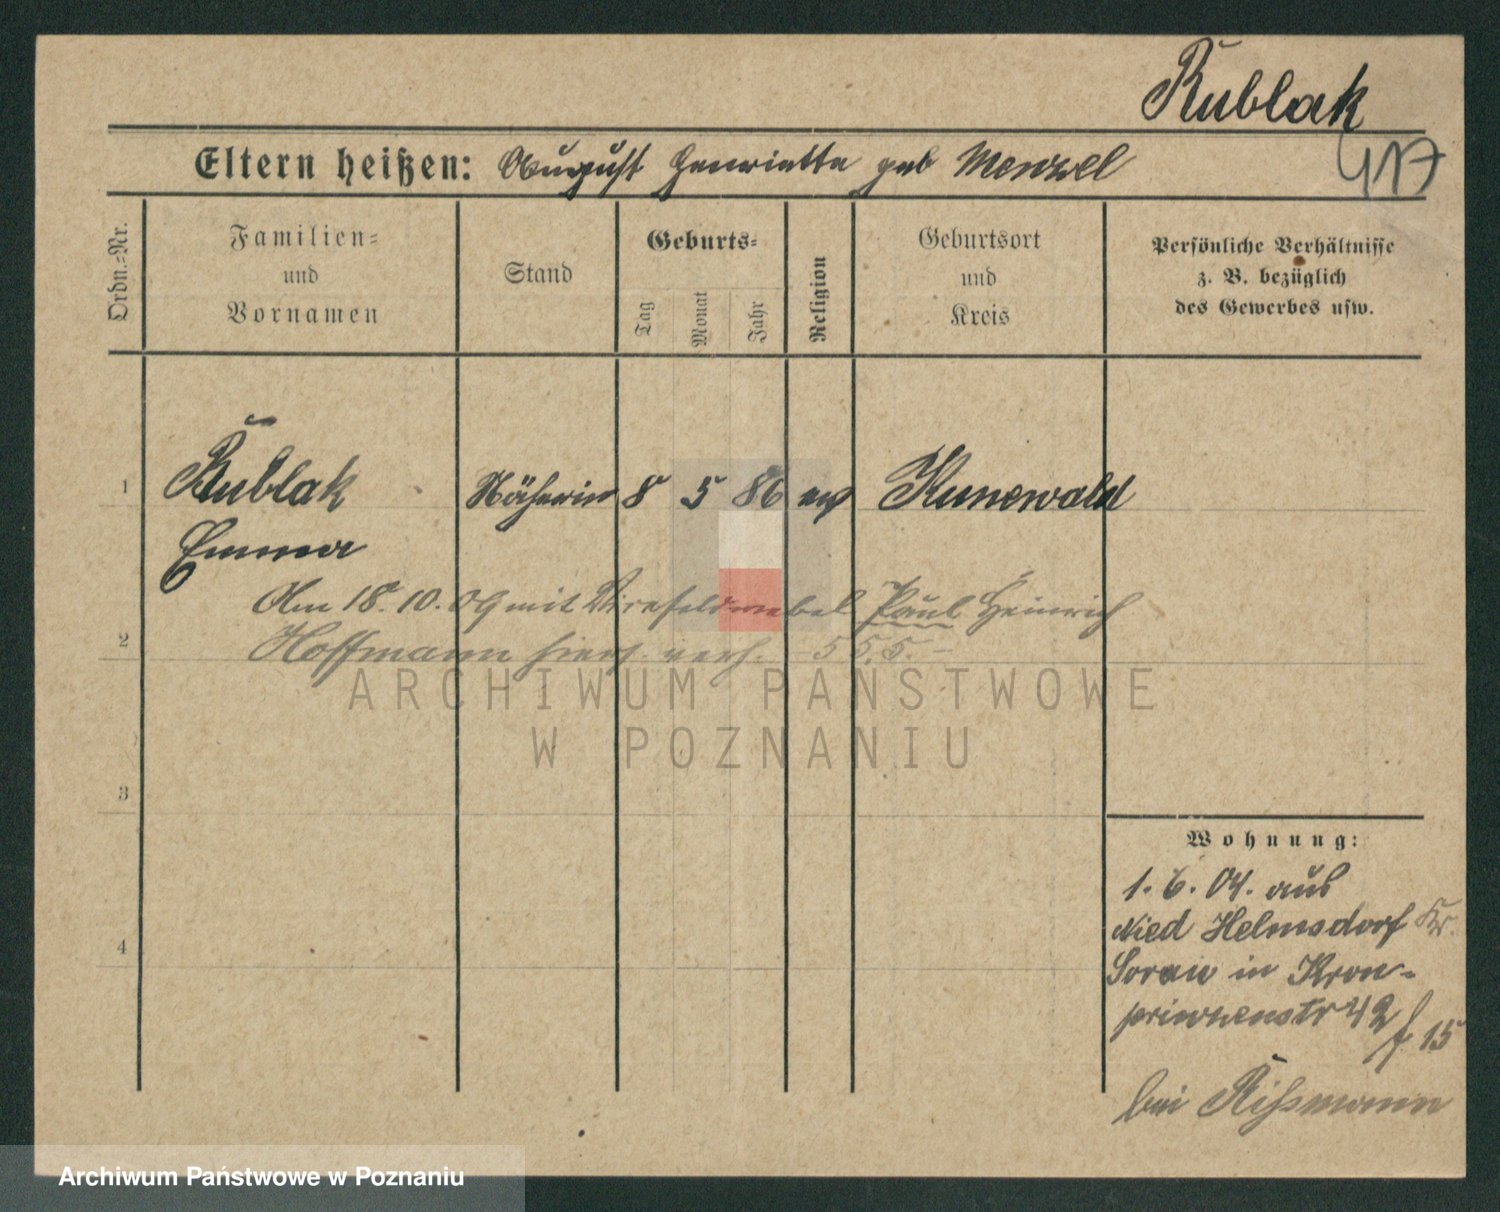 Rublak
417
Eltern heißen: August Henriette geb Menzel
Ordn.-Nr.
Familien-
und
Vornamen
Stand
Geburts-
Tag
Monat
Jahr
Religion
Geburtsort
und
Kreis
Persönliche Verhältnisse
z. B. bezüglich
des Gewerbes usw.
1
Rublak
Näherin 8 5 86 ev Kunewald
Emma
Am 18. 10. 09 mit Vizefeldwebel Paul Heinrich
2
Hoffmann hiers. verh. 555.
ARCHIWUM PAŃSTWOWE
W POZNANIU
3
Wohnung:
1. 6. 04. aus
Nied Helmsdorf Kr.
4
Sorau in Kron-
prinzenstr 42
f 15
bei Rißmann
Archiwum Państwowe w Poznaniu